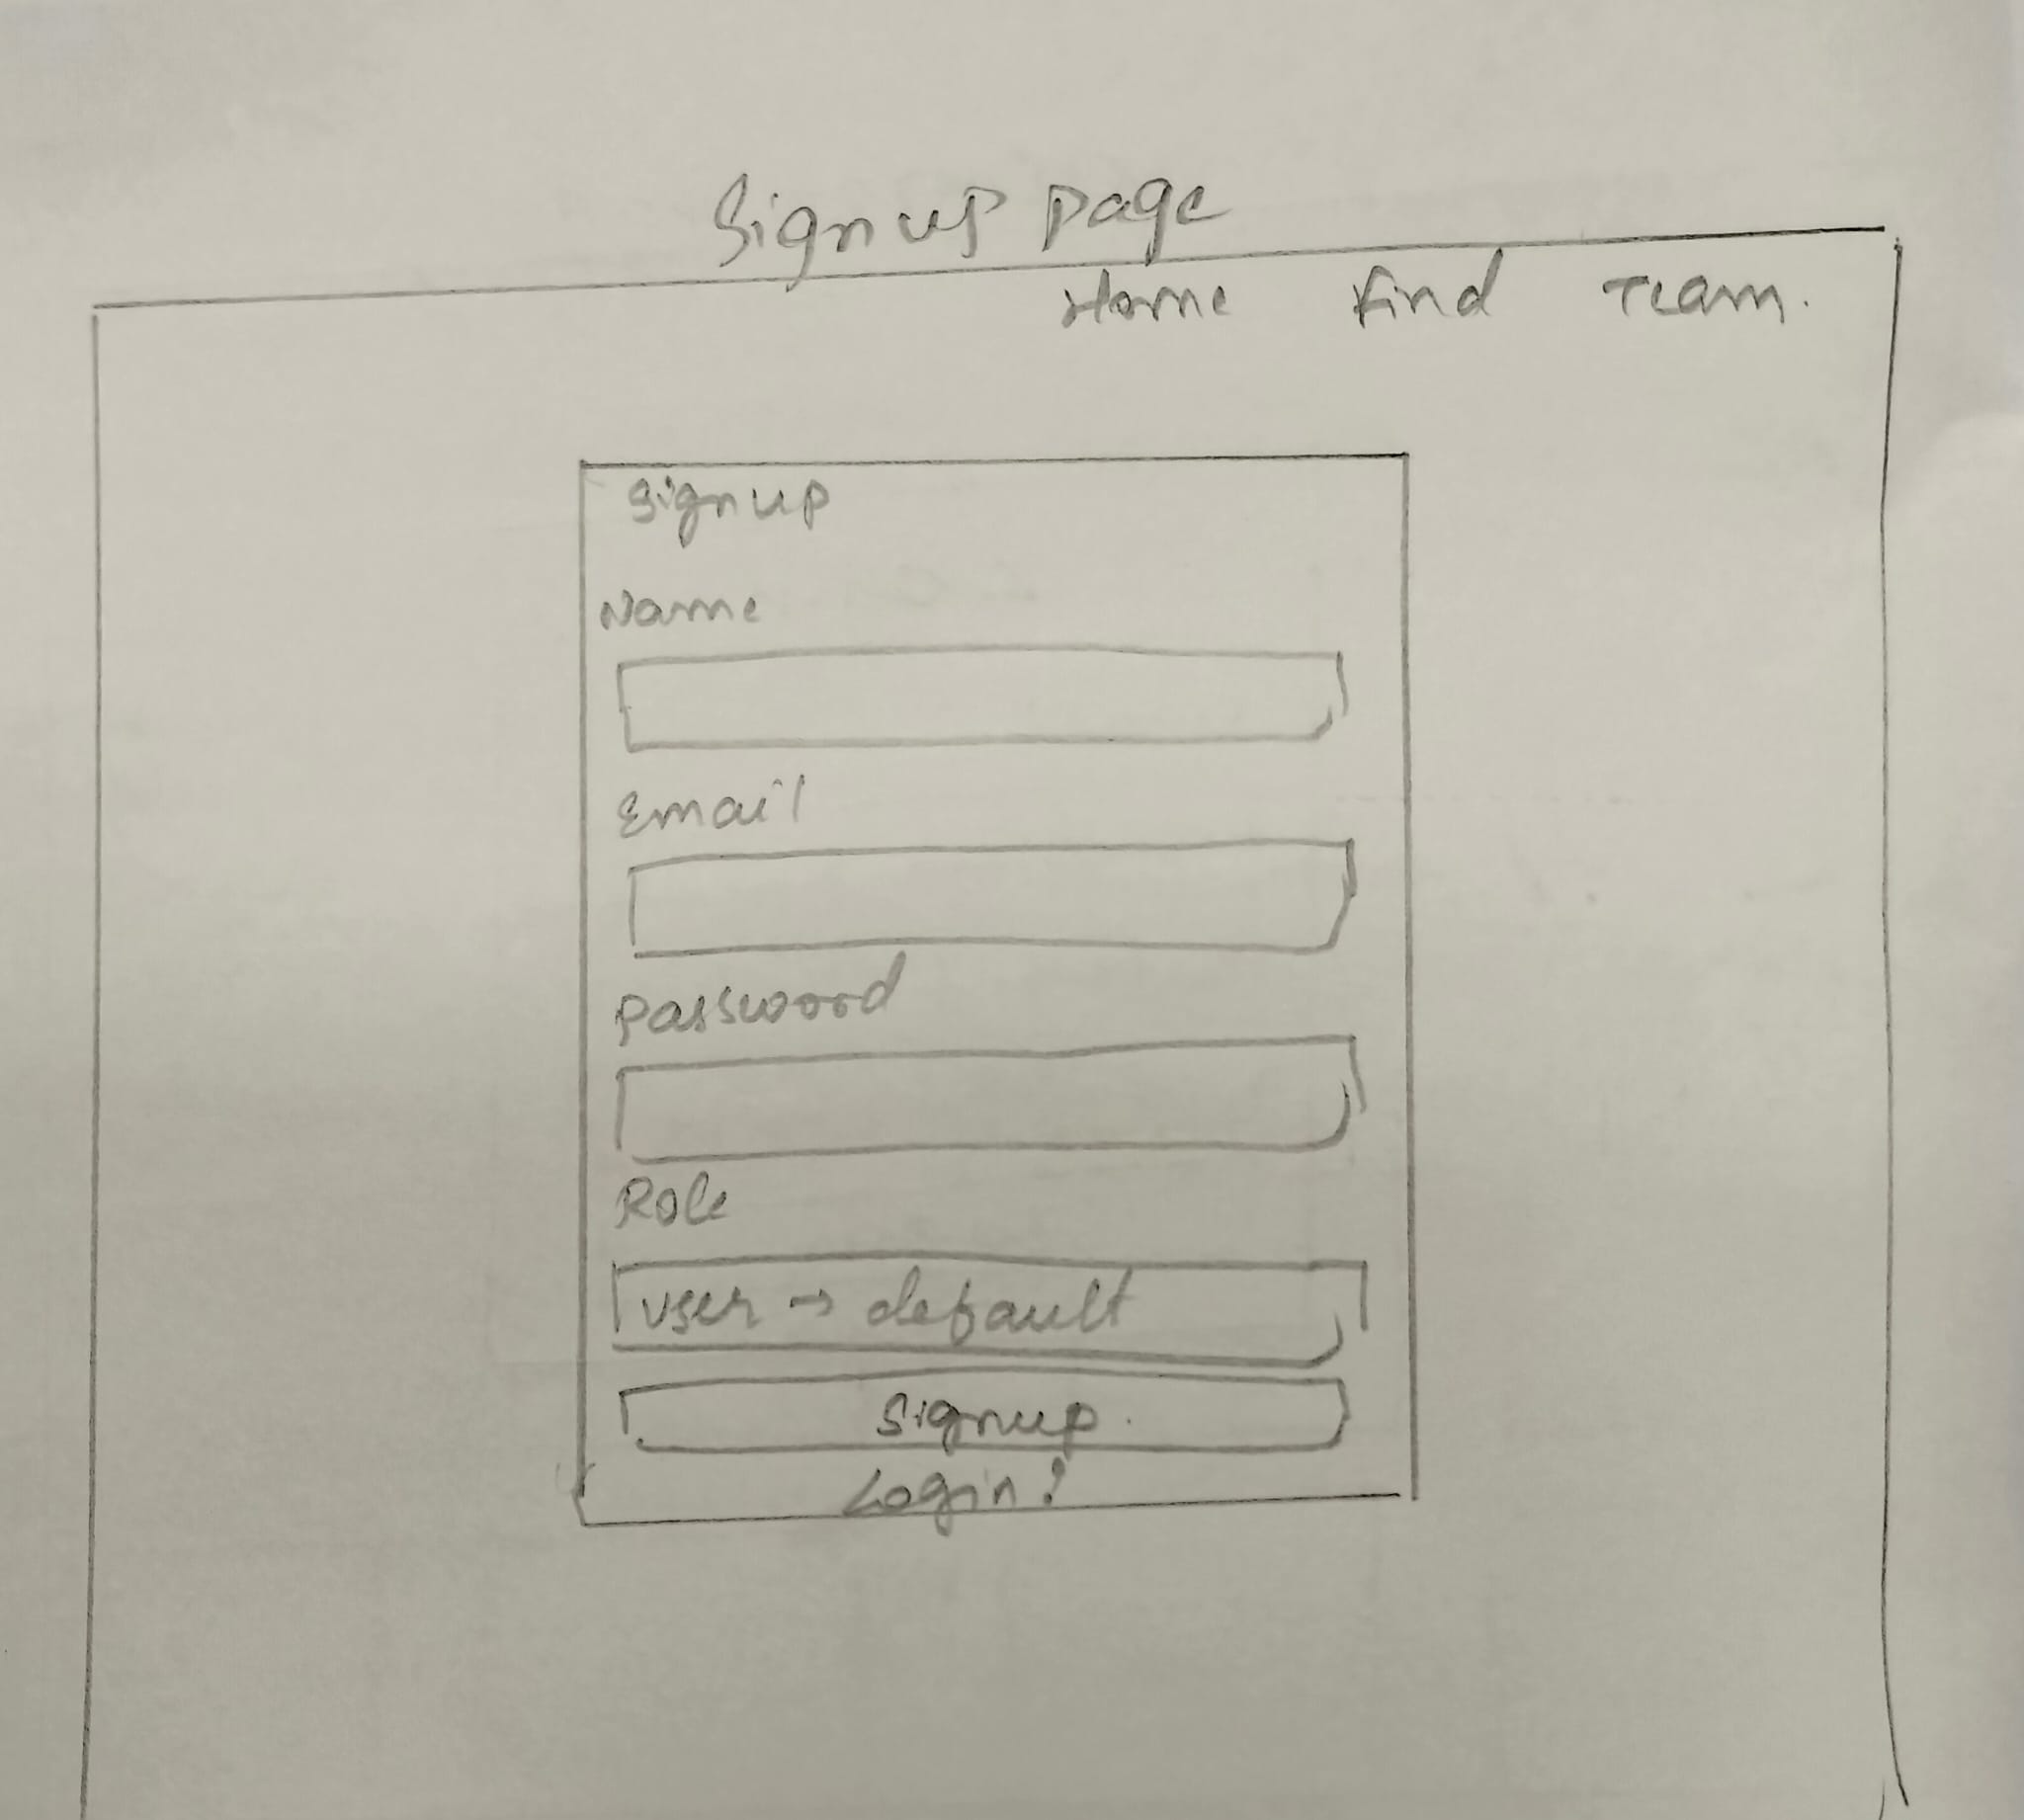 Signup page
Home Find Team.
Signup
Name
Email
Password
Role
User → default
Signup.
Login?